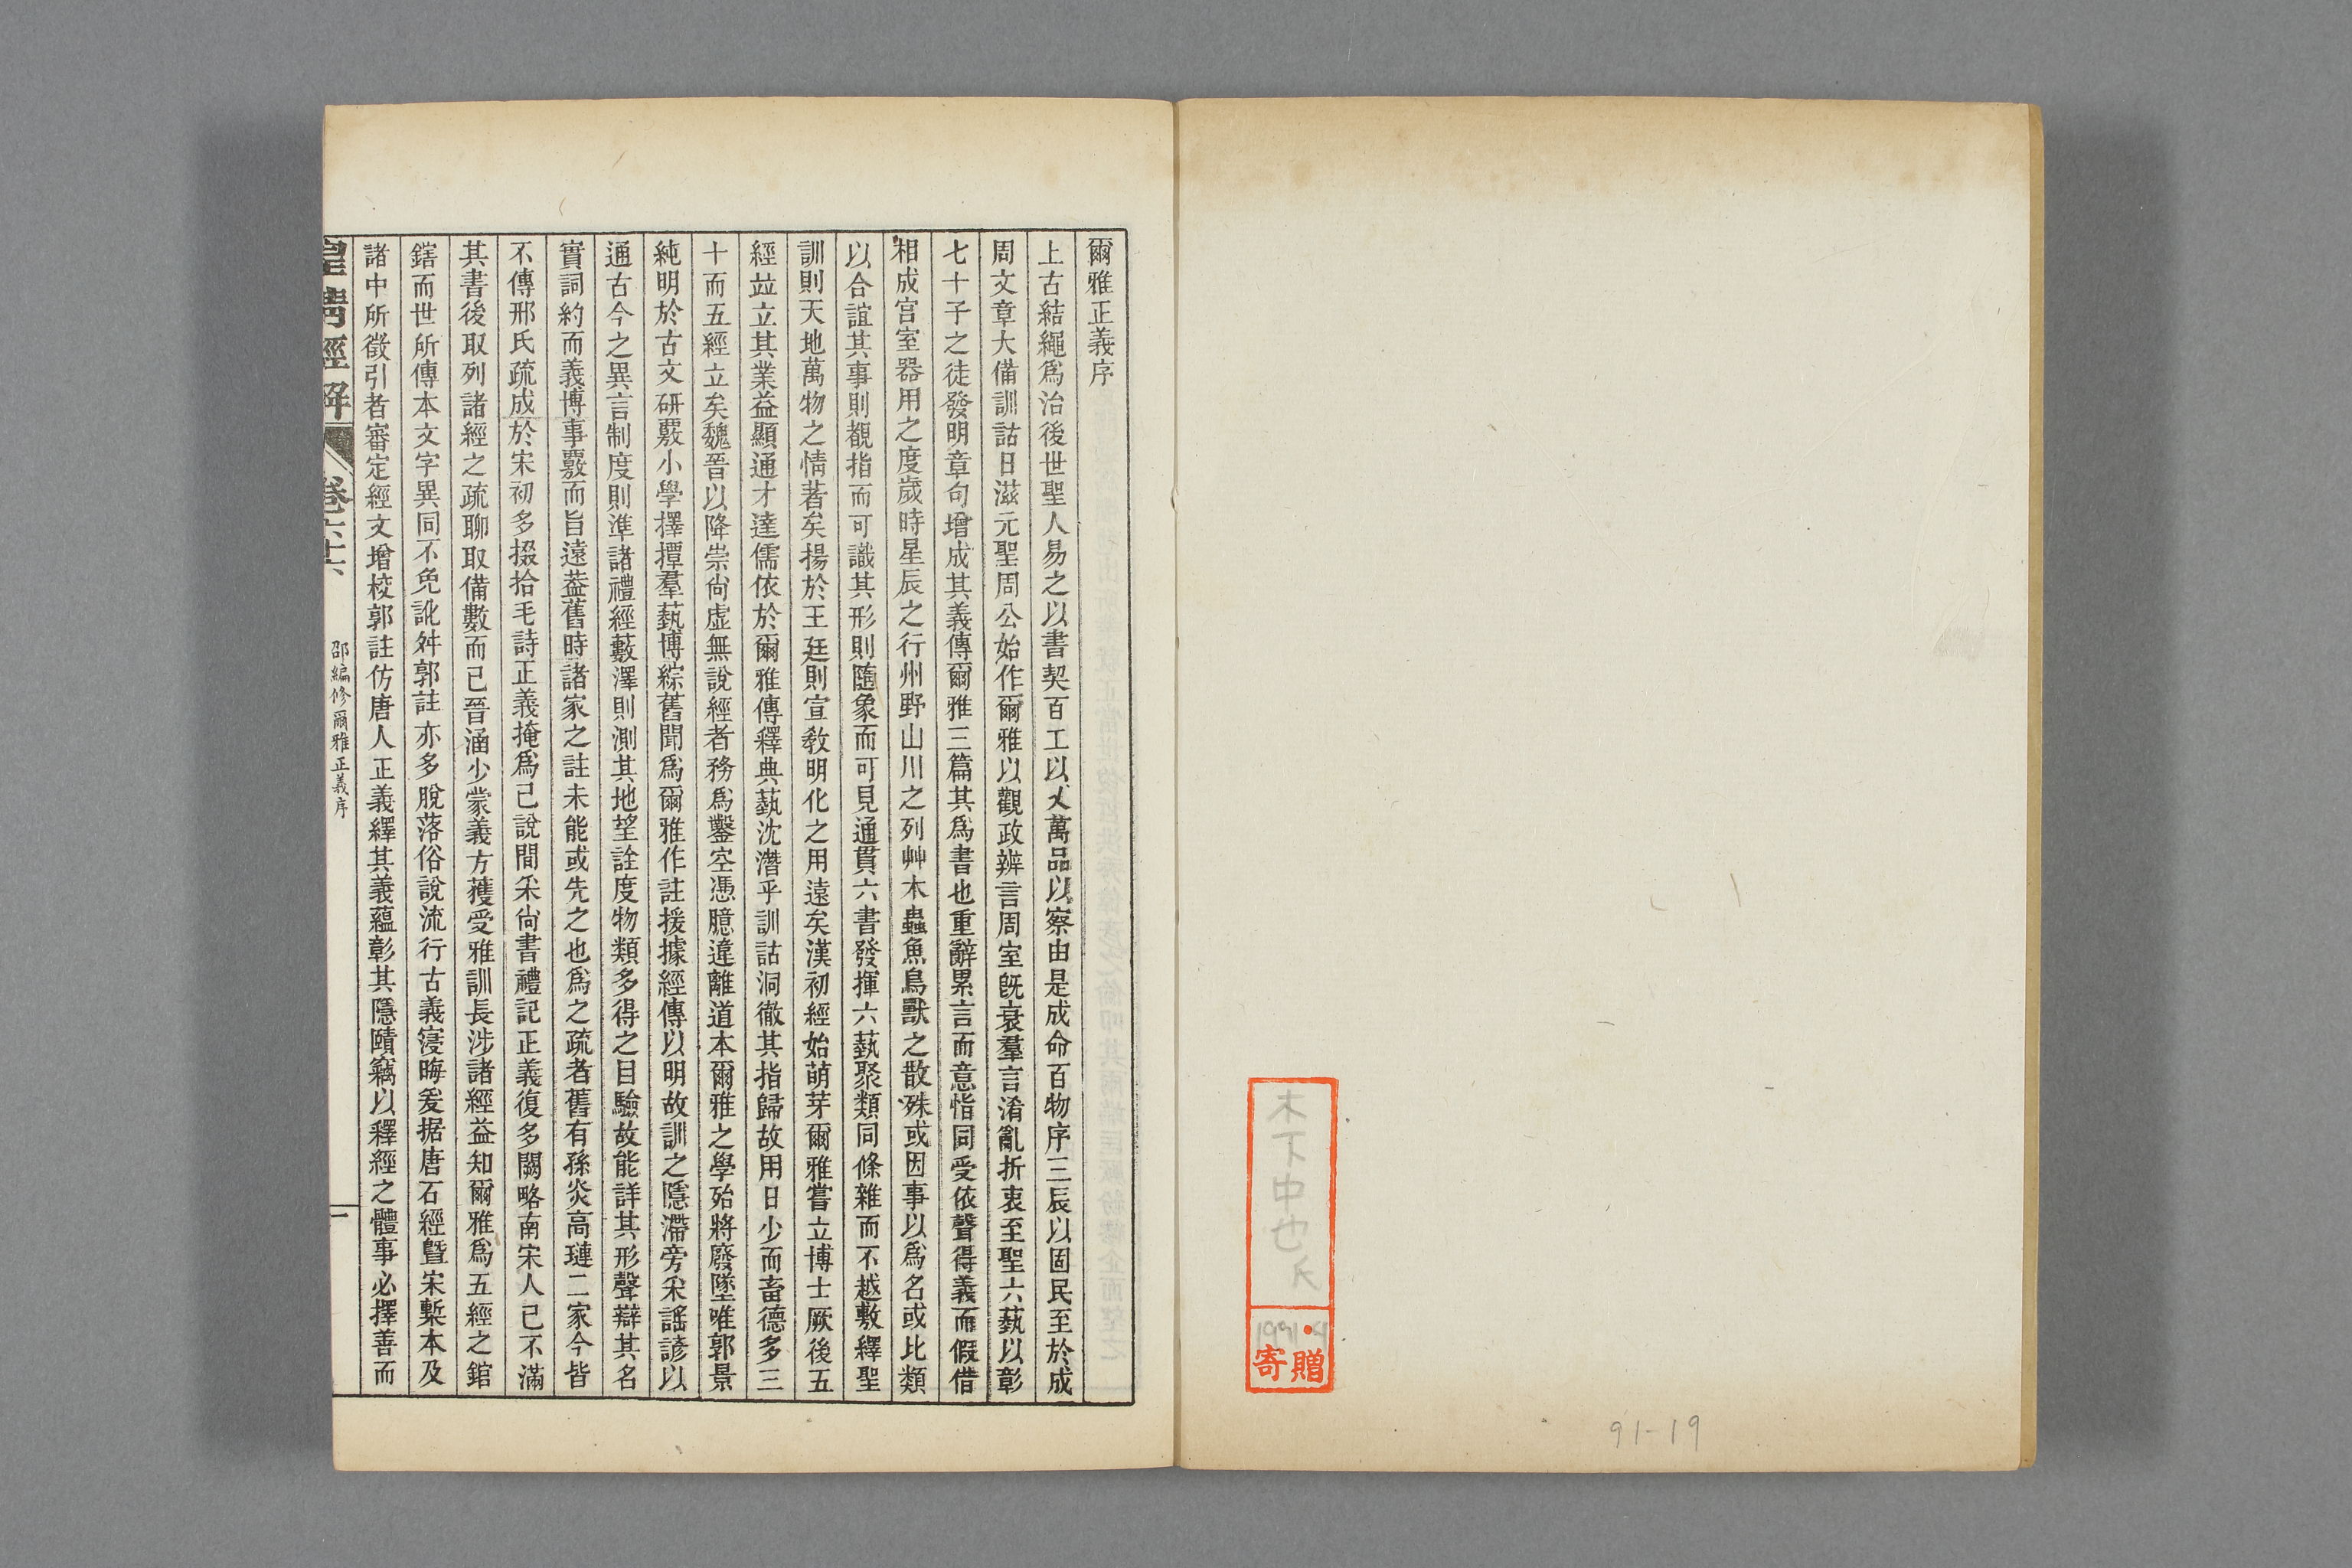 爾雅正義序
上古結繩爲治後世聖人易之以書契百工以乂萬品以察由是成命百物序三辰以固民至於成
周文章大備訓詁日滋元聖周公始作爾雅以觀政辨言周室旣衰羣言淆亂折衷至聖六藝以彰
七十子之徒發明章句增成其義傳爾雅三篇其爲書也重辭累言而意恉同受依聲得義而假借
相成宫室器用之度歲時星辰之行州野山川之列艸木蟲魚鳥獸之散殊或因事以爲名或比類
以合誼其事則覩指而可識其形則隨象而可見通貫六書發揮六藝聚類同條雜而不越敷繹聖
訓則天地萬物之情著矣揚於王廷則宣敎明化之用遠矣漢初經始萌芽爾雅嘗立博士厥後五
經竝立其業益顯通才達儒依於爾雅傳釋典藝沈潛乎訓詁洞徹其指歸故用日少而畜德多三
十而五經立矣魏晉以降崇尙虛無說經者務爲鑿空憑臆違離道本爾雅之學殆將廢墜唯郭景
純明於古文研覈小學擇撢羣藝博綜舊聞爲爾雅作註援據經傳以明故訓之隱滯旁采謠諺以
通古今之異言制度則準諸禮經藪澤則測其地望詮度物類多得之目驗故能詳其形聲辯其名
實詞約而義博事覈而旨遠葢舊時諸家之註未能或先之也爲之疏者舊有孫炎高璉二家今皆
不傳邢氏疏成於宋初多掇拾毛詩正義掩爲己說間采尙書禮記正義復多闕略南宋人已不滿
其書後取列諸經之疏聊取備數而已晉涵少蒙義方獲受雅訓長涉諸經益知爾雅爲五經之錧
鎋而世所傳本文字異同不免訛舛郭註亦多脫落俗說流行古義寖晦爰据唐石經曁宋槧本及
諸中所徵引者審定經文增校郭註仿唐人正義繹其義蘊彰其隱賾竊以釋經之體事必擇善而
皇清經解
邵編修爾雅正義序
一
寄贈
91-19